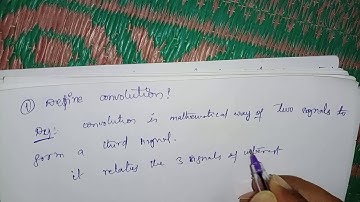 ① Define convolution?
Defn: Convolution is mathematical way of two signals to
form a third signal.
it relates the 3 signals of interest